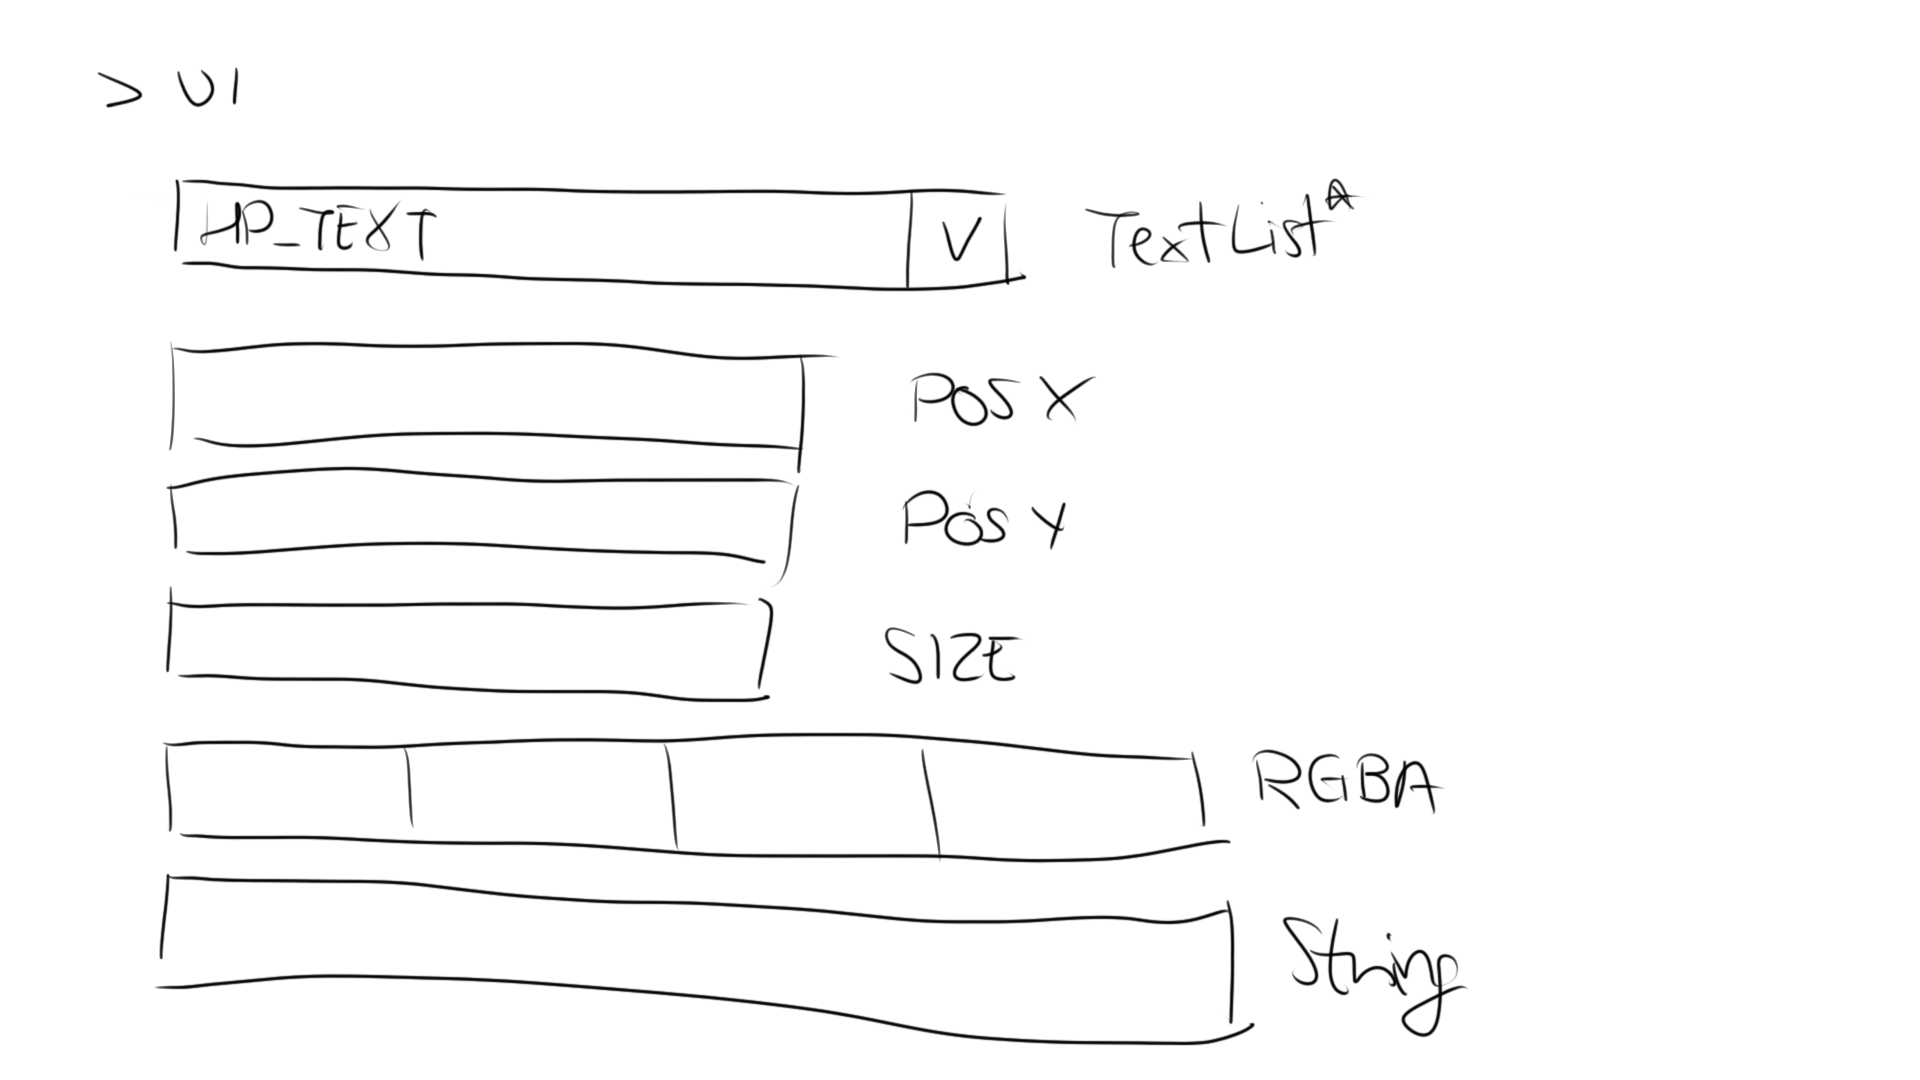 > UI
HP_TEXT V TextList*
POS X
POS Y
SIZE
RGBA
String